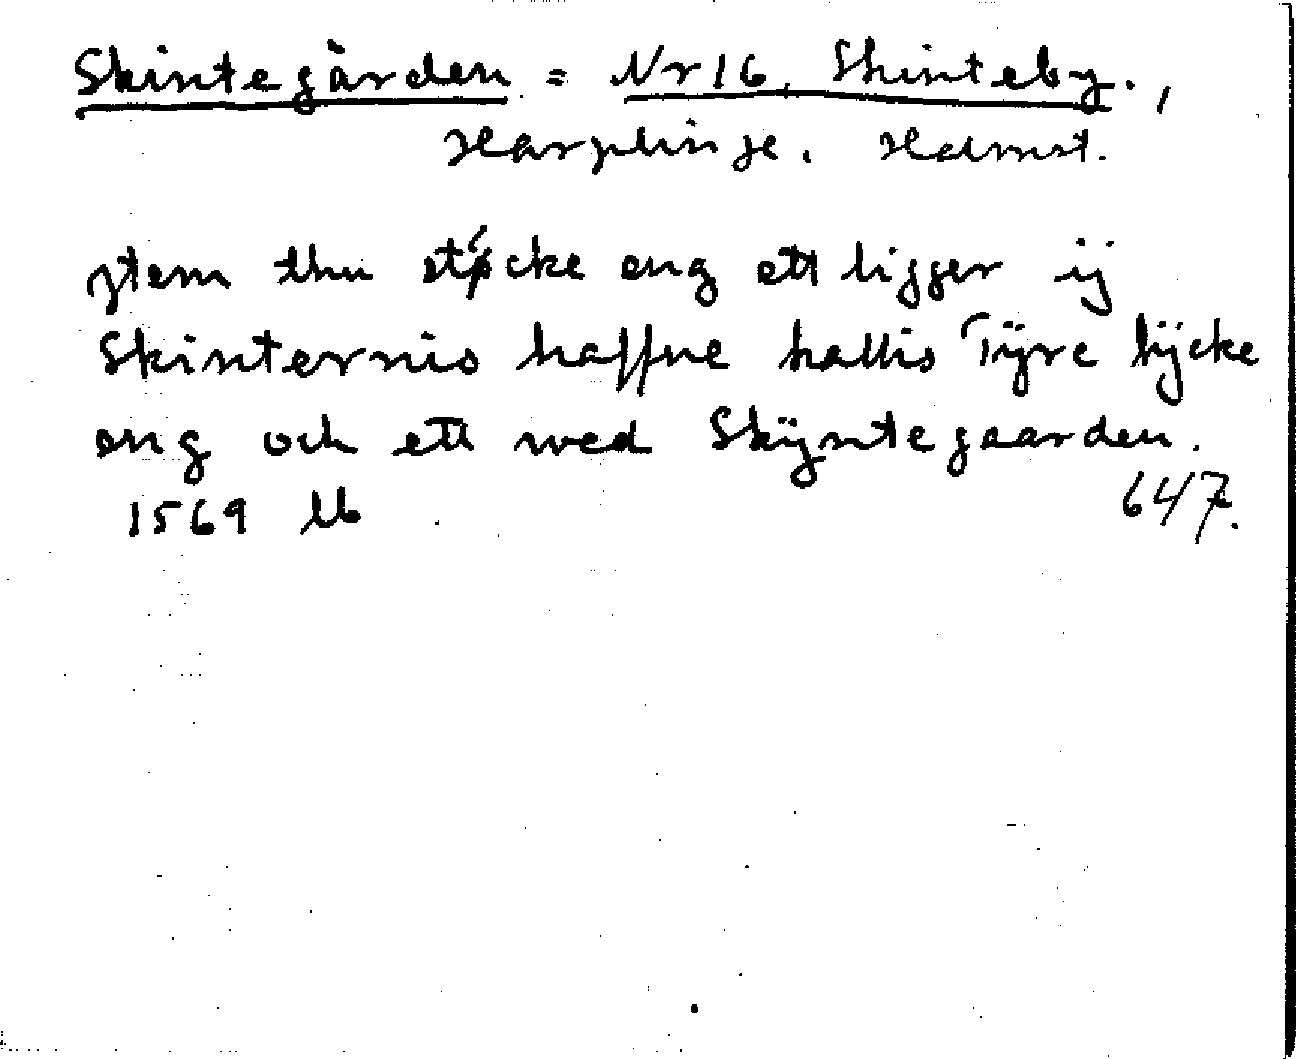 Skintegården = Nr 16, Skinteby.,
Harplinge. Halmst.
ytem thu støcke eng ett ligger ij
Skinternis haffue hallis Tÿre lÿcke
eng och ett wed Skÿntegaarden.
1569 Jb 647.